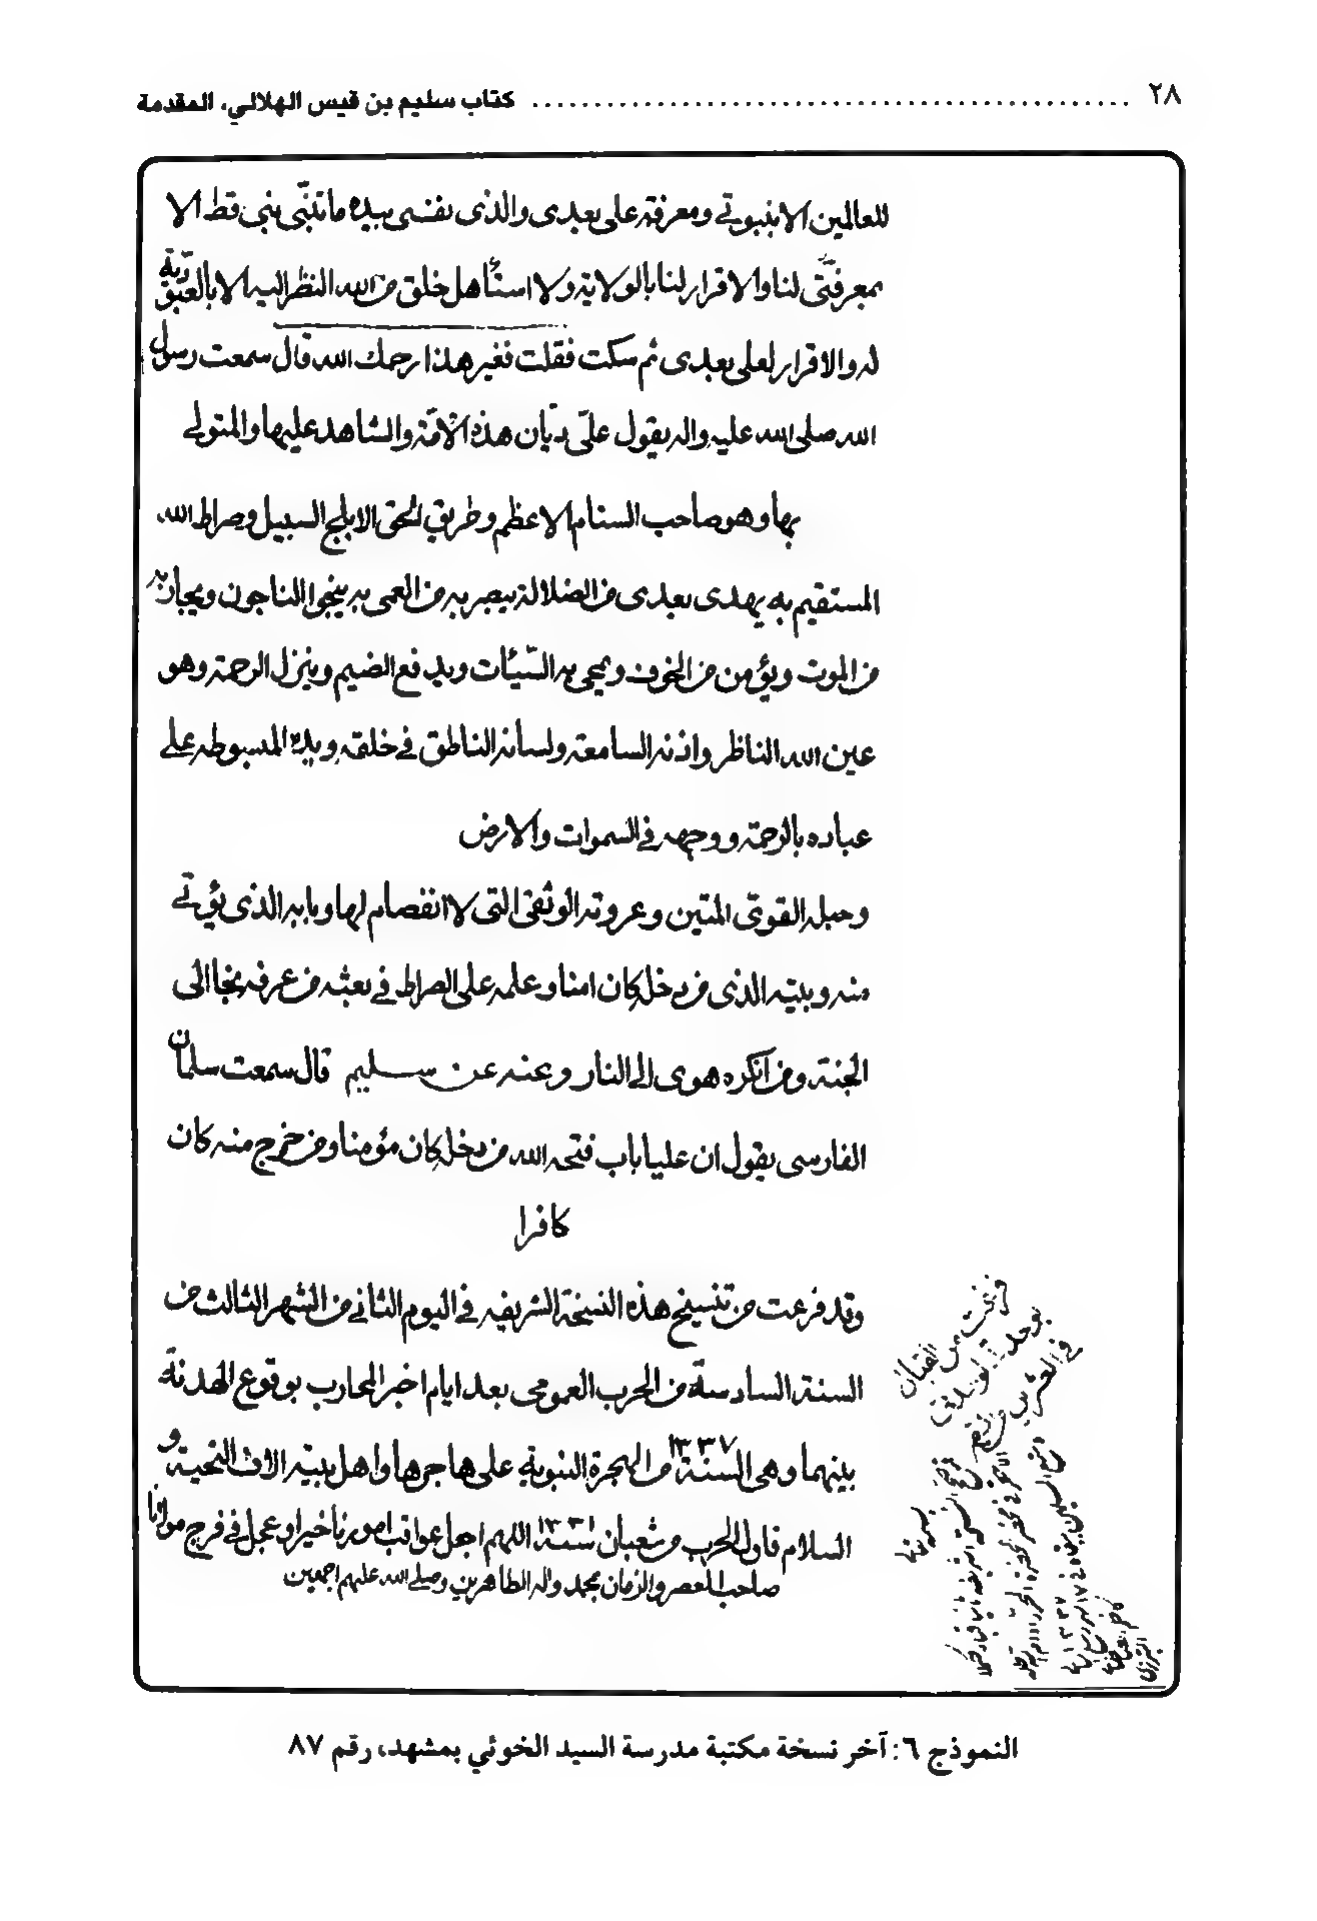 ٢٨ ........ كتاب سليم بن قيس الهلالي، المقدمة
للعالمين الا بنبوتي ومعرفة على بعدى والذى نفسى بيده ما تنبّى نبى قط الا
بمعرفتى لنا والاقرار لنا بالولاية ولا استأهل خلق من الله النظر اليه الا بالعبودية
له والاقرار لعلى بعدى ثم سكت فقلت فغير هذا رحمك الله قال سمعت رسول
الله صلى الله عليه واله يقول علىّ ديّان هذه الامّة والشاهد عليها والمتولى
بها وهو صاحب السنام الاعظم وطريق الحق الابلج السبيل وصراط الله
المستقيم به يهدى بعدى من الضلالة يبصر به من العمى به ينجوا الناجون ويجار به
من الموت ويؤمن من الخوف ويمحى به السّيئات ويدفع الضيم وينزل الرحمة وهو
عين الله الناظر واذنه السامعة ولسانه الناطق في خلقه ويده المبسوطه على
عباده بالرحمة ووجهه في السموات والارض
وحبله القوىّ المتين وعروته الوثقى التى لا انفصام لها وبابه الذى يؤتى
منه وبيته الذى من دخله كان امنا وعلمه على الصراط في بعثه من عرفه نجا الى
الجنة ومن انكره هوى الى النار وعنه عن سليم قال سمعت سلمان
الفارسى يقول ان عليا باب فتحه الله من دخله كان مؤمنا ومن خرج منه كان
كافرا
وقد فرغت من تنسيخ هذه النسخة الشريفه في اليوم الثانى من الشهر الثالث من
السنة السادسة من الحرب العمومى بعد ايام اخبر المحارب بوقوع الهدنة
بينهما وهى السنة ١٣٣٧ من الهجرة النبوية على هاجرها واهل بيته الاف التحية و
السلام فاول الحرب من شعبان سنة ١٣٣١ اللهم اجعل عواقب امورنا خيرا وعجل في فرج مولانا
صاحب العصر والزمان بمحمد واله الطاهرين وصلى الله عليهم اجمعين
النموذج ٦: آخر نسخة مكتبة مدرسة السيد الخوئي بمشهد، رقم ٨٧